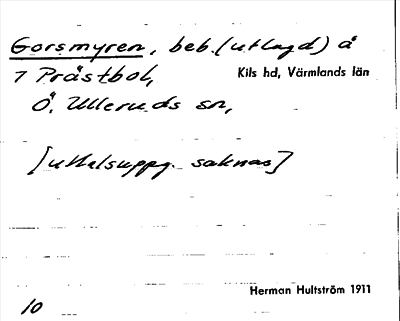 Gorsmyren, beb. (utlagd) å
7 Prästbol, Kils hd, Värmlands län
Ö. Ulleruds sn,
[uttalsuppg. saknas]
Herman Hultström 1911
10